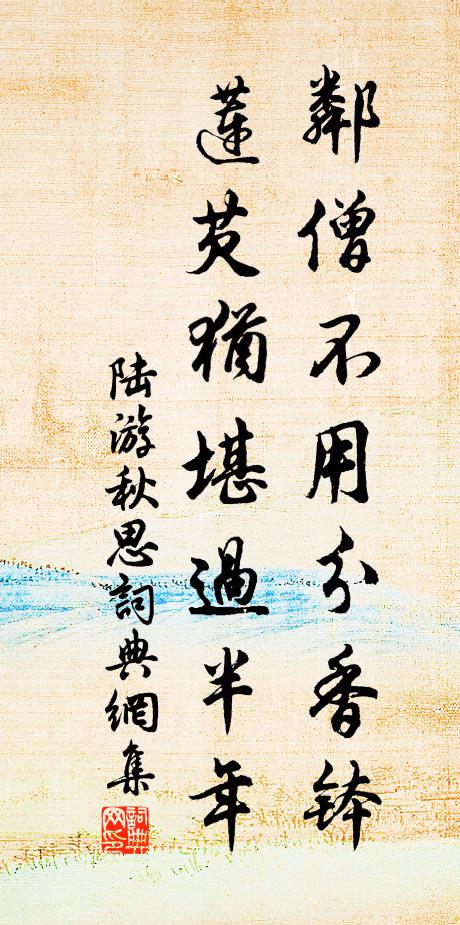 鄰僧不用分香鉢
蓮芡猶堪過半年
陆游秋思詞典網集
詞典网印